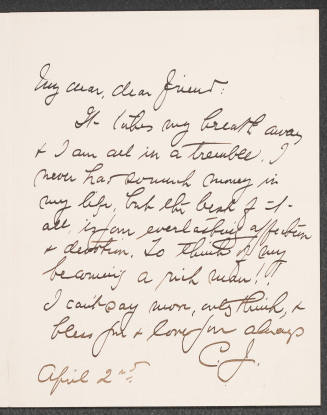 My dear, dear friend:
It takes my breath away
& I am all in a tremble. I
never had so much money in
my life, but the best of it
all, is your everlasting affection
& devotion. To think of my
becoming a rich man!!
I can't say more, only thank, &
bless you & love you always
C. J.
April 2nd